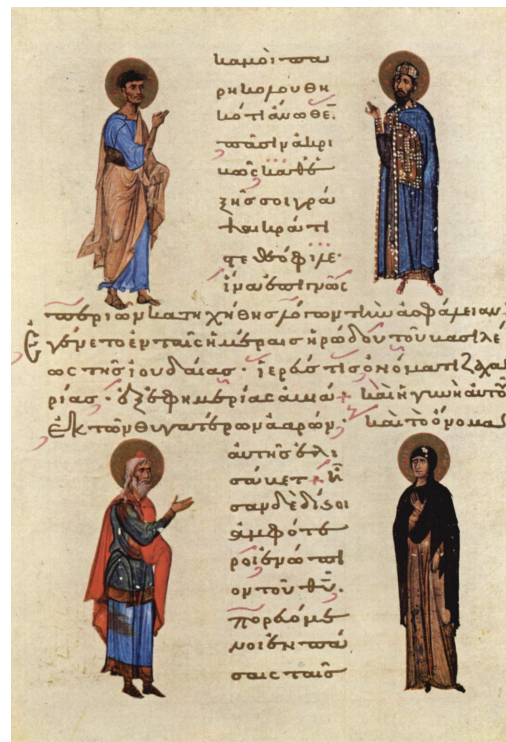 κἀμοὶ πα
ρηκολουθη
κότι ἄνωθε̄
πᾶσιν ἀκρι
βῶς καθε
ξῆς σοι γρά
ψαι κράτι
στε θεόφιλε·
ἵνα ἐπιγνῷς
περὶ ὧν κατηχήθης λόγων τὴν ἀσφάλειαν·
Ἐγένετο ἐν ταῖς ἡμέραις ἡρώδου τοῦ βασιλέ
ως τῆς ἰουδαίας· ἱερεύς τις ὀνόματι ζαχα
ρίας· ἐξ ἐφημερίας ἀβιά + καὶ ἡ γυνὴ αὐτοῦ
ἐκ τῶν θυγατέρων ἀαρών· καὶ τὸ ὄνομα
αὐτῆς ἐλι
σάβετ + ἦ
σαν δὲ δίκαιοι
ἀμφότε
ροι ἐνώπι
ον τοῦ θ̅υ̅·
πορευόμε
νοι ἐν πά
σαις ταῖς